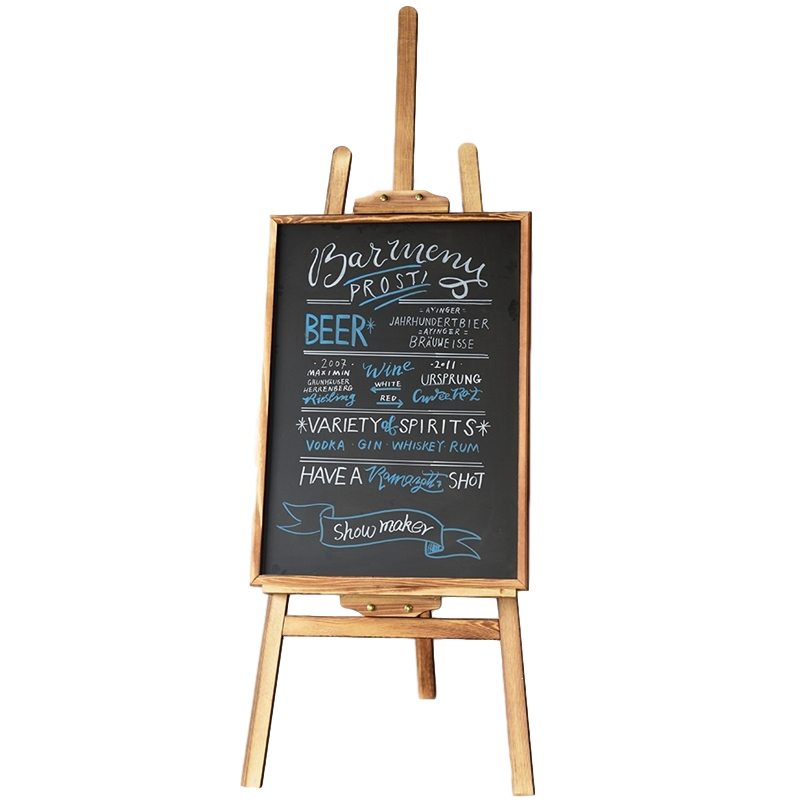 Barmeny
PROST!
BEER*
= AYINGER =
JAHRHUNDERTBIER
= AYINGER =
BRÄUWEISSE
· 2007 ·
MAXIMIN
GRÜNHÄUSER
HERRENBERG
Riesling
Wine
WHITE
RED
· 2011 ·
URSPRUNG
Cuvée
*VARIETY of SPIRITS*
VODKA · GIN · WHISKEY · RUM
HAVE A Ramazotti SHOT
Show maker